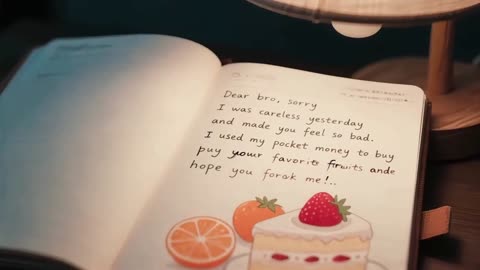 Dear bro, sorry
I was careless yesterday
and made you feel so bad.
I used my pocket money to buy
puy your favorite fruits ande
hope you forɞk me!..